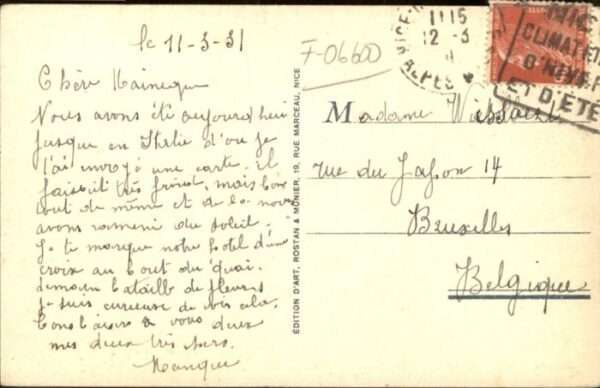 le 11-3-31
F-06600
Chère Maineque
Nous avons été aujourd'hui
jusque en Italie d'où je
t'ai envoyé une carte. il
faisait très froid, mais
tout de même et de là nous
avons ramené du soleil.
Je te marque notre hotel d'une
croix au bout du quai.
demain bataille de fleurs
je suis curieuse de voir cela.
a vous deux
mes deux très chers.
ÉDITION D'ART, ROSTAN & MUNIER, 19, RUE MARCEAU, NICE
11 15
12 - 3
CLIMAT
D'HIVER
ET D'ÉTÉ
Madame
rue du Japon 14
Bruxelles
Belgique